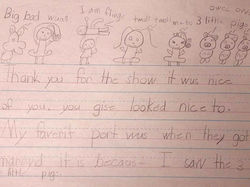 Big bad wans I am fling twet twet me to 3 little pig
Thank you for the show it wus nice
of you. you gise looked nice to.
My faverit part wus when they got
maneyd it is becaus I saw the 3
little pigs.